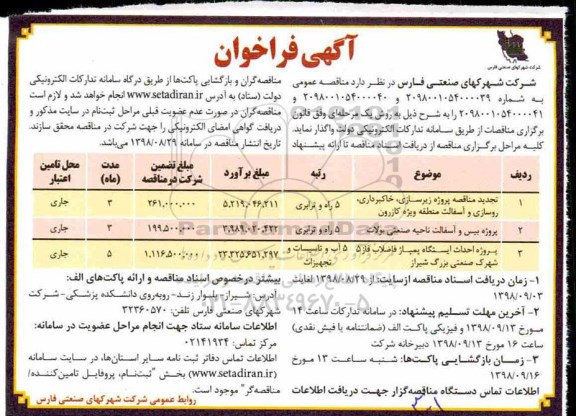 آگهی فراخوان
شرکت شهرکهای صنعتی فارس
شرکت شهرکهای صنعتی فارس در نظر دارد مناقصه عمومی
به شماره ۲۰۹۸۰۰۱۰۵۴۰۰۰۰۳۹ و ۲۰۹۸۰۰۱۰۵۴۰۰۰۰۴۰ و
۲۰۹۸۰۰۱۰۵۴۰۰۰۰۴۱ را به شرح ذیل به روش یک مرحله‌ای وفق قانون
برگزاری مناقصات از طریق سامانه تدارکات الکترونیکی دولت واگذار نماید.
کلیه مراحل برگزاری مناقصه از دریافت اسناد مناقصه تا ارائه پیشنهاد
مناقصه‌گران و بازگشایی پاکت‌ها از طریق درگاه سامانه تدارکات الکترونیکی
دولت (ستاد) به آدرس www.setadiran.ir انجام خواهد شد و لازم است
مناقصه‌گران در صورت عدم عضویت قبلی مراحل ثبت‌نام در سایت مذکور و
دریافت گواهی امضای الکترونیکی را جهت شرکت در مناقصه محقق سازند.
تاریخ انتشار مناقصه در سامانه ۱۳۹۸/۰۸/۲۹ می‌باشد.
ردیف موضوع رتبه مبلغ برآورد مبلغ تضمین شرکت در مناقصه مدت (ماه) محل تامین اعتبار
۱ تجدید مناقصه پروژه زیرسازی، خاکبرداری، روسازی و آسفالت منطقه ویژه کازرون ۵ راه و ترابری ۵,۲۱۹,۰۴۶,۳۱۱ ۲۶۱,۰۰۰,۰۰۰ ۳ جاری
۲ پروژه بیس و آسفالت ناحیه صنعتی بولات ۵ راه و ترابری ۳,۹۸۹,۰۲۰,۴۲۲ ۱۹۹,۵۰۰,۰۰۰ ۳ جاری
۳ پروژه احداث ایستگاه پمپاژ فاضلاب فاز ۵ شهرک صنعتی بزرگ شیراز ۵ آب و تاسیسات و تجهیزات ۲۲,۳۲۵,۶۵۱,۲۹۷ ۱,۱۱۶,۵۰۰,۰۰۰ ۵ جاری
۱- زمان دریافت اسناد مناقصه از سایت: از ۱۳۹۸/۰۸/۲۹ لغایت
۱۳۹۸/۰۹/۰۳
۲- آخرین مهلت تسلیم پیشنهاد: در سامانه تدارکات ساعت ۱۴
مورخ ۱۳۹۸/۰۹/۱۳ و فیزیکی پاکت الف (ضمانتنامه یا فیش نقدی)
ساعت ۱۶ مورخ ۱۳۹۸/۰۹/۱۳ دبیرخانه شرکت
۳- زمان بازگشایی پاکت‌ها: شنبه ساعت ۱۳ مورخ
۱۳۹۸/۰۹/۱۶
اطلاعات تماس دستگاه مناقصه‌گزار جهت دریافت اطلاعات
بیشتر درخصوص اسناد مناقصه و ارائه پاکت‌های الف:
آدرس: شیراز- بلوار زند- روبه‌روی دانشکده پزشکی- شرکت
شهرکهای صنعتی فارس تلفن: ۳۲۳۶۰۵۷۰
اطلاعات سامانه ستاد جهت انجام مراحل عضویت در سامانه:
مرکز تماس: ۰۲۱۴۱۹۳۴
اطلاعات تماس دفاتر ثبت نامه سایر استان‌ها، در سایت سامانه
(www.setadiran.ir) بخش "ثبت‌نام، پروفایل تامین‌کننده/
مناقصه‌گر" موجود است.
روابط عمومی شرکت شهرکهای صنعتی فارس